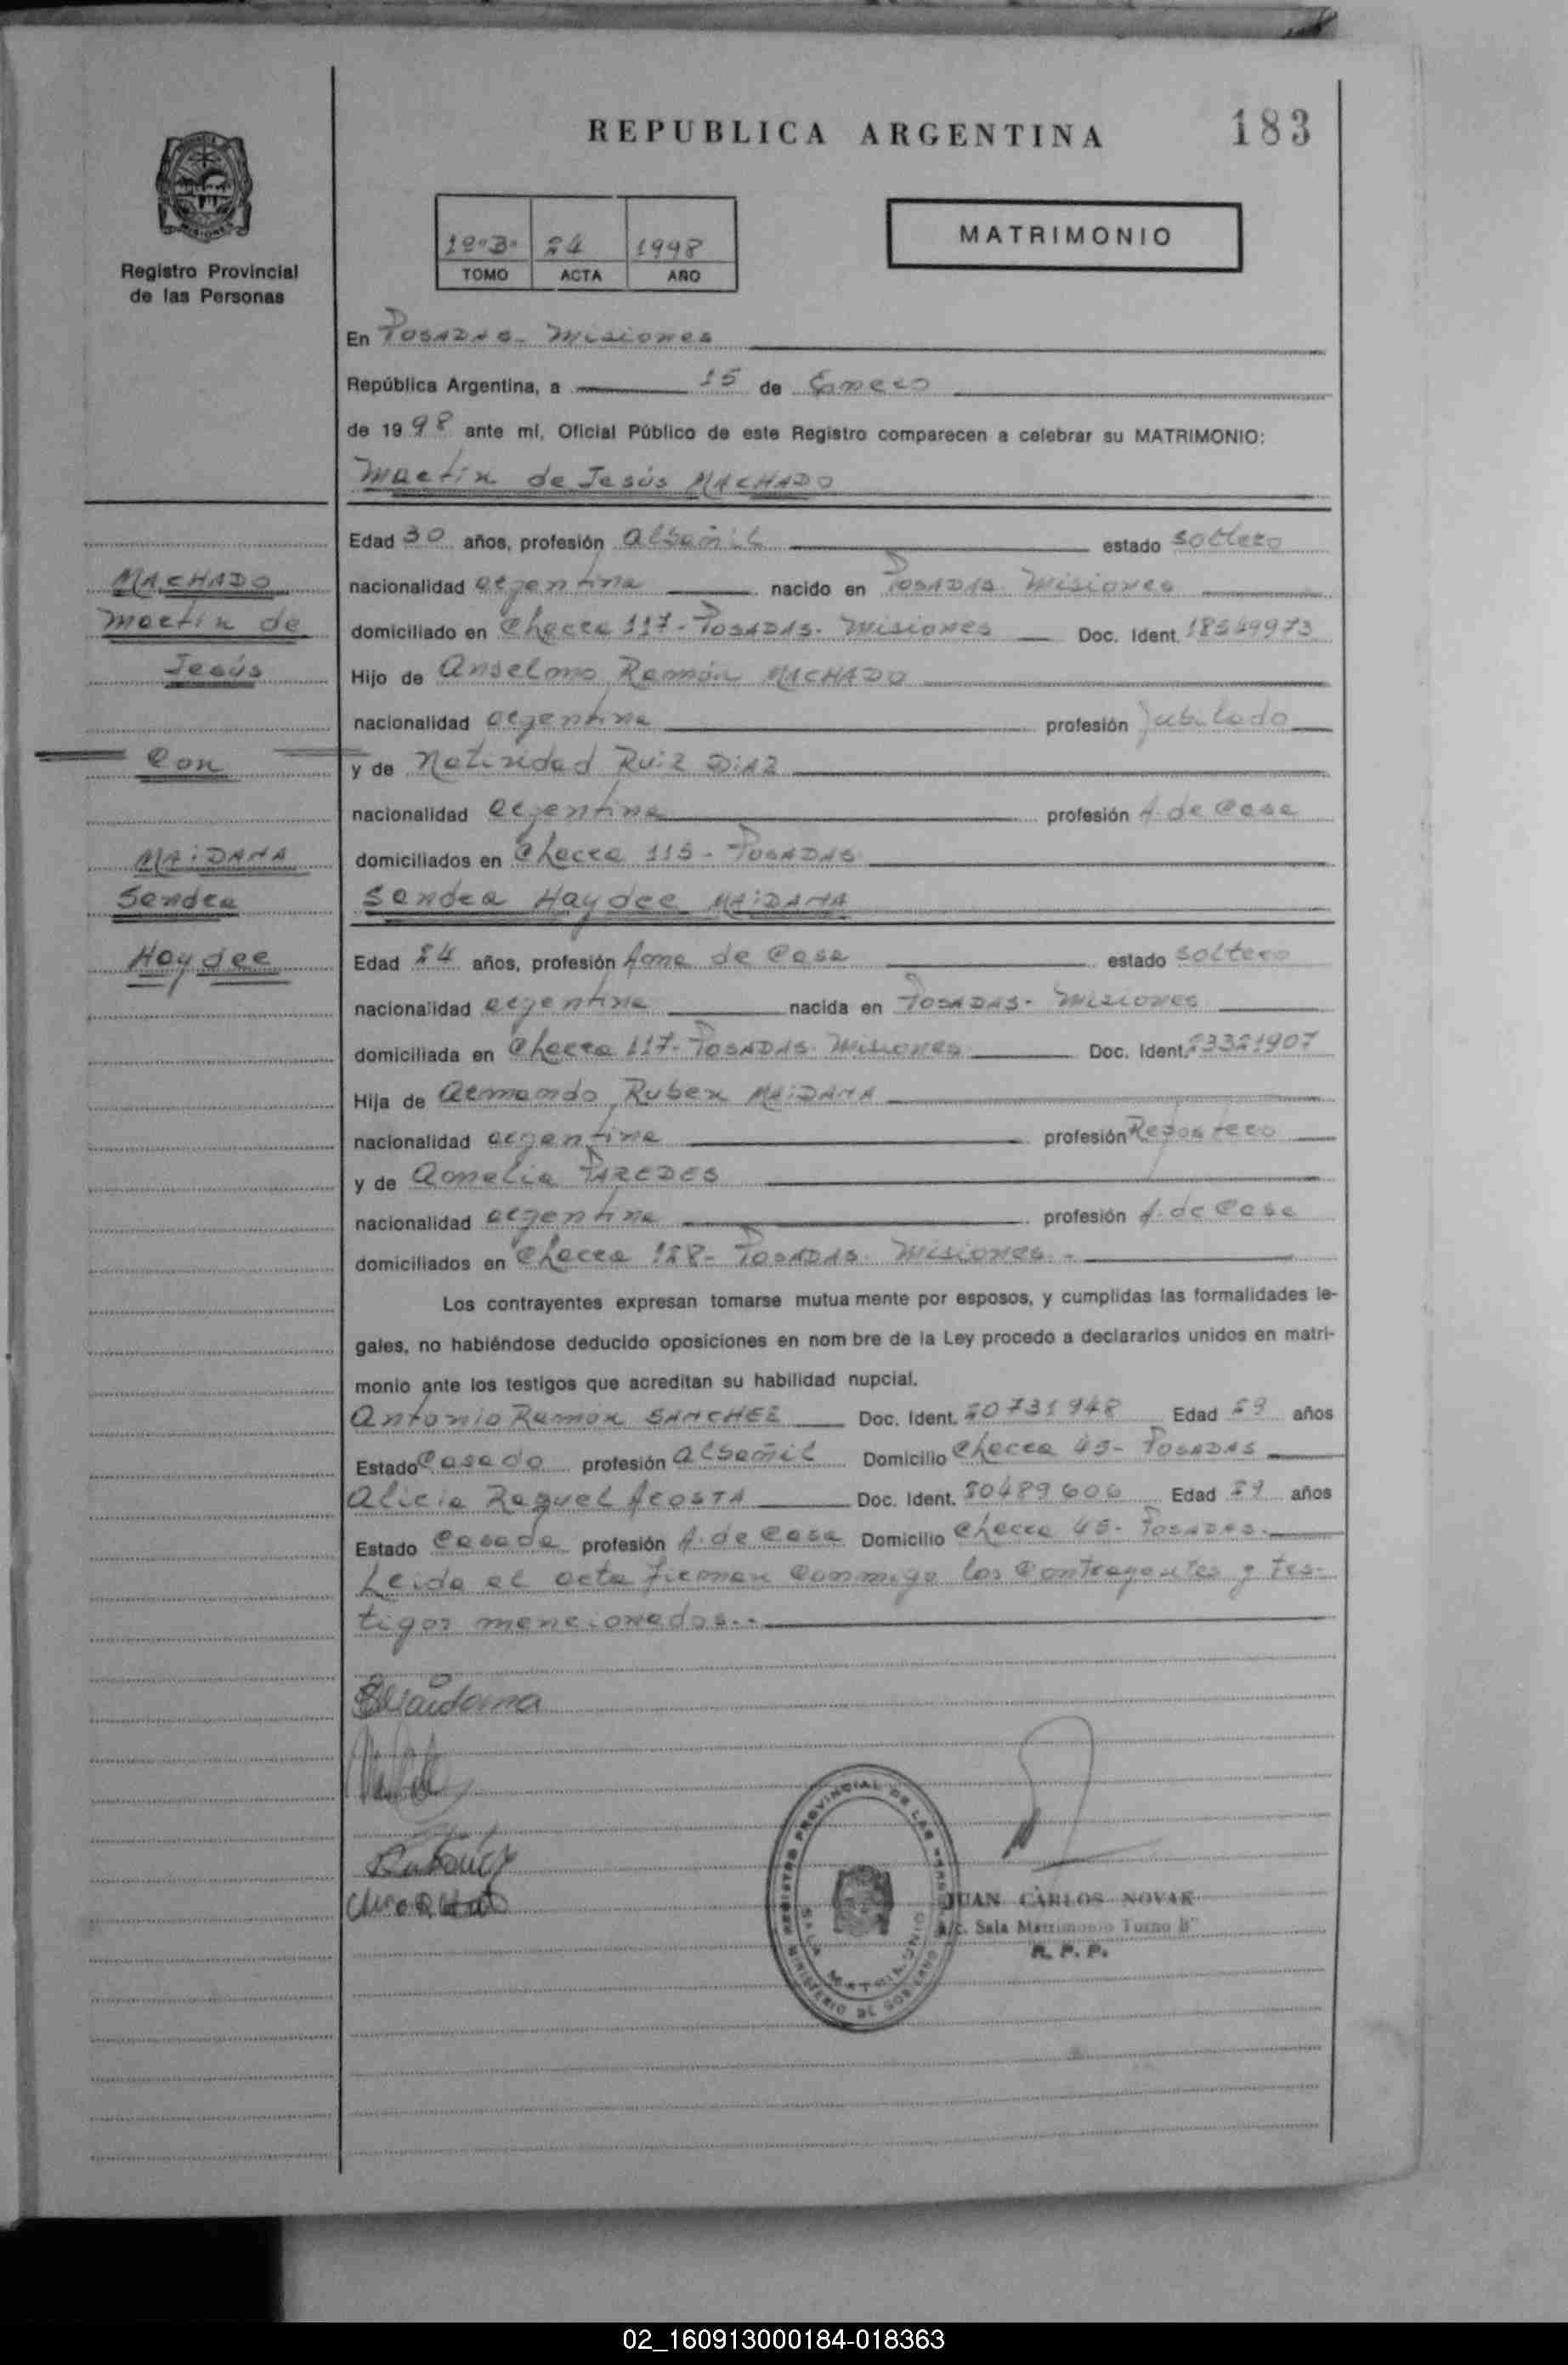 REPUBLICA ARGENTINA
183
Registro Provincial
de las Personas
1º "B" 24 1998
TOMO ACTA AÑO
MATRIMONIO
En POSADAS - Misiones
República Argentina, a 15 de Enero
de 1998 ante mí, Oficial Público de este Registro comparecen a celebrar su MATRIMONIO:
Martín de Jesús MACHADO
Edad 30 años, profesión albañil estado soltero
nacionalidad argentina nacido en POSADAS Misiones
domiciliado en Chacra 117 - POSADAS - Misiones Doc. Ident. 18549973
Hijo de Anselmo Ramón MACHADO
nacionalidad argentina profesión jubilado
y de Natividad Ruiz DIAZ
nacionalidad argentina profesión A. de Casa
domiciliados en Chacra 115 - POSADAS
Sandra Haydee MAIDANA
Edad 24 años, profesión Ama de Casa estado soltera
nacionalidad argentina nacida en POSADAS - Misiones
domiciliada en Chacra 117 - POSADAS Misiones Doc. Ident. 23321907
Hija de Armando Ruben MAIDANA
nacionalidad argentina profesión Repostero
y de Amelia PAREDES
nacionalidad argentina profesión A. de Casa
domiciliados en Chacra 128 - POSADAS Misiones -
Los contrayentes expresan tomarse mutua mente por esposos, y cumplidas las formalidades le-
gales, no habiéndose deducido oposiciones en nom bre de la Ley procedo a declararlos unidos en matri-
monio ante los testigos que acreditan su habilidad nupcial.
Antonio Ramón SANCHEZ Doc. Ident. 20731948 Edad 29 años
Estado Casado profesión albañil Domicilio Chacra 45 - POSADAS
Alicia Raquel ACOSTA Doc. Ident. Edad 29 años
Estado Casada profesión A. de Casa Domicilio Chacra 45 - POSADAS -
Leida el acta firman conmigo los Contrayentes y tes-
tigos mencionados.-
MACHADO
Martín de
Jesús
Con
MAIDANA
Sandra
Haydee
SMaidana
REGISTRO PROVINCIAL DE LAS PERSONAS
SALA MATRIMONIO
MINISTERIO DE GOBIERNO
JUAN CARLOS NOVAK
a/c. Sala Matrimonio Turno B"
R. P. P.
02_160913000184-018363